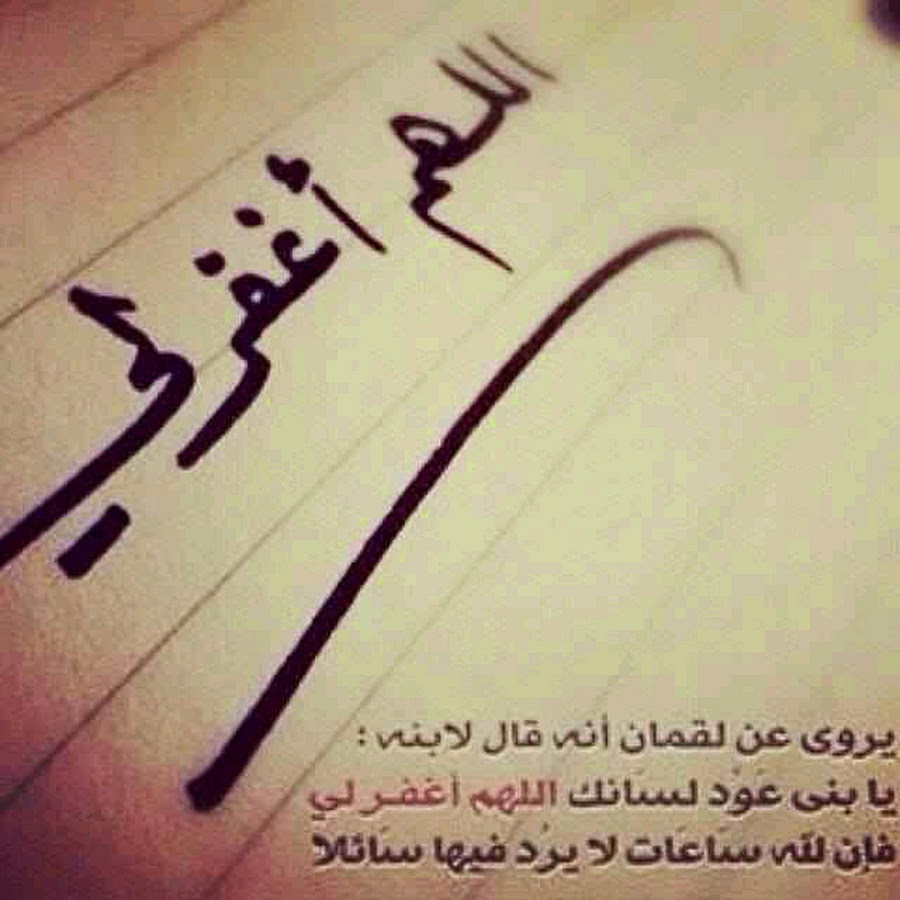 اللهم أغفر لي
يروى عن لقمان أنه قال لابنه :
يا بنى عَوّد لسَانك اللهم أغفر لي
فإن لله سَاعَات لا يرُد فيها سَائلا